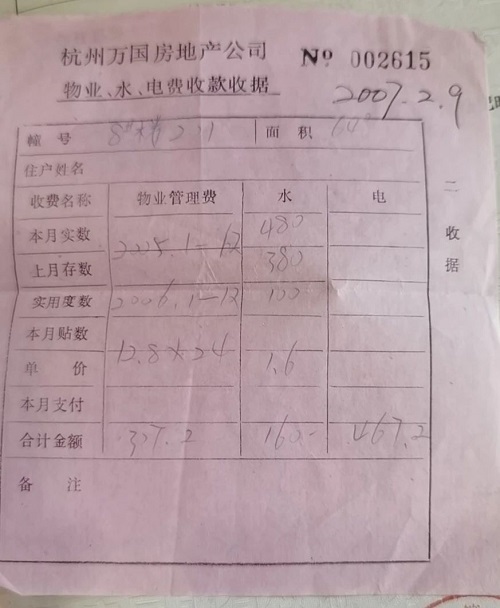 杭州万国房地产公司 Nº 002615
物业、水、电费收款收据 2007.2.9
幢号 面积
住户姓名
收费名称 物业管理费 水 电
本月实数 2005.1-12 480
上月存数 380
实用度数 2006.1-12 100
本月贴数
单价 12.8×24 1.6
本月支付
合计金额 307.2 160- 467.2
备注
二收据